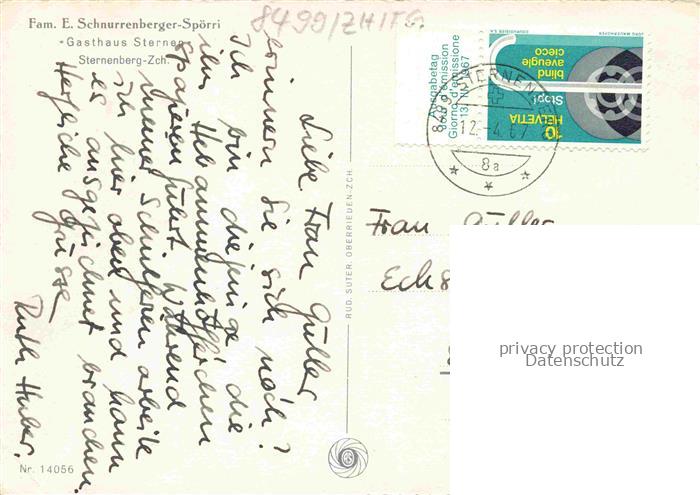 8499/ZH ITG.
Fam. E. Schnurrenberger-Spörri
"Gasthaus Sternen"
Sternenberg-Zch.
Liebe Frau Güller
erinnern Sie sich noch?
Ich bin diejenige die
ihr Hebammenköfferchen
spazieren führt. Während
meiner Schwangeren arbeite
ich hier oben und kann
es ausgezeichnet brauchen.
Herzliche Grüsse
Ruth Huber.
Nr. 14056
RUD. SUTER, OBERRIEDEN-ZCH.
Ausgabetag
Jour d'émission
Giorno d'emissione
13. III. 1967
blind
aveugle
cieco
Stop!
HELVETIA
10
STERNENBERG
12.-4.67
8a
Frau Güller
privacy protection
Datenschutz